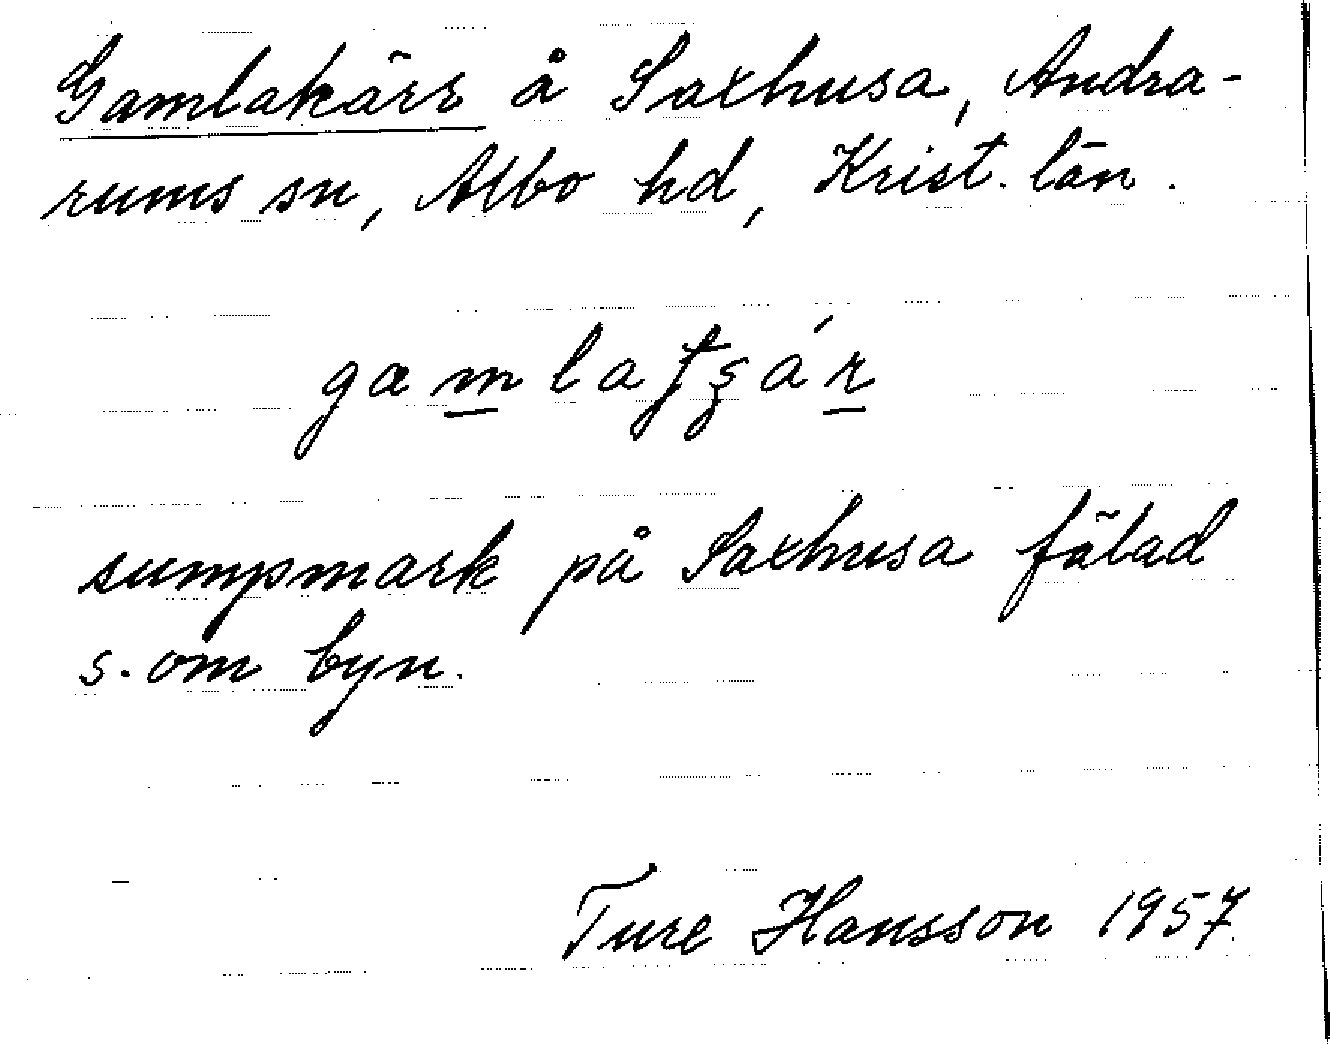 Gamlakärr å Saxhusa, Andra-
rums sn, Albo hd, Krist. län.
sumpmark på Saxhusa fälad
s. om byn.
Ture Hansson 1957.